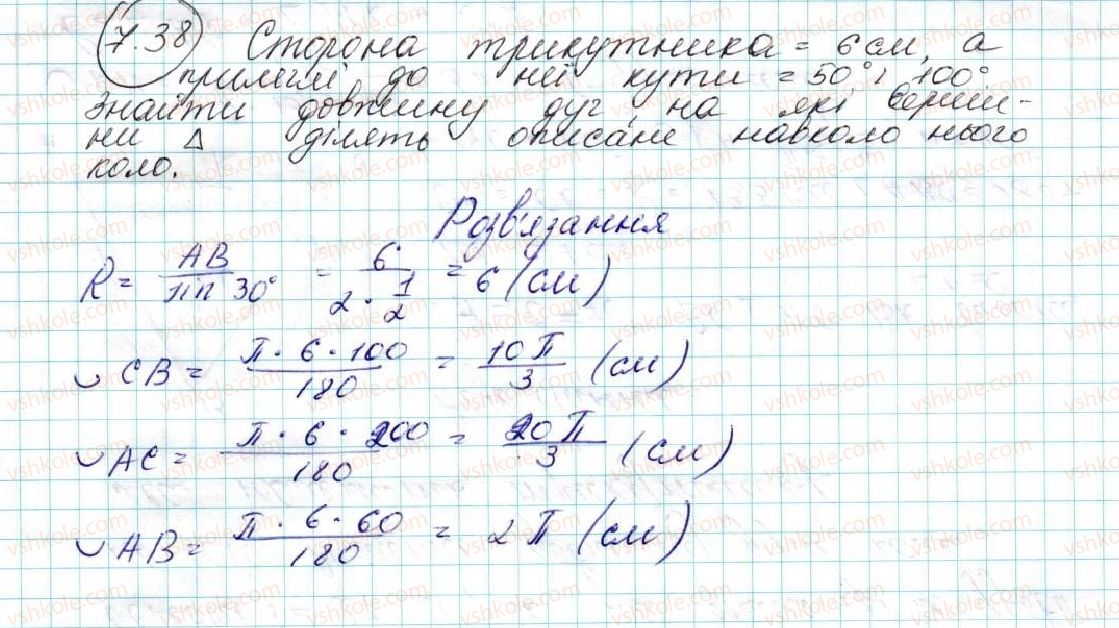 7.38 Сторона трикутника = 6 см, а
прилеглі до неї кути = 50° і 100°
Знайти довжину дуг, на які верши-
ни △ ділять описане навколо нього
коло.
Розв'язання
R = AB / sin 30° = 6 / (2 · 1/2) = 6 (см)
◡ CB = π · 6 · 100 / 180 = 10π / 3 (см)
◡ AC = π · 6 · 200 / 180 = 20π / 3 (см)
◡ AB = π · 6 · 60 / 180 = 2π (см)